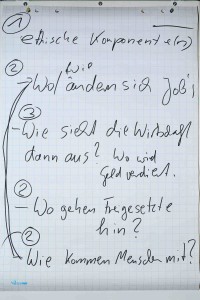 ①
ethische Komponente(n)
② Wie
Wo/ ändern sich Jobs,
③
- Wie sieht die Wirtschaft
dann aus? Wo wird
Geld verdient.
②
- Wo gehen Freigesetzte
hin?
②
Wie kommen Menschen mit?